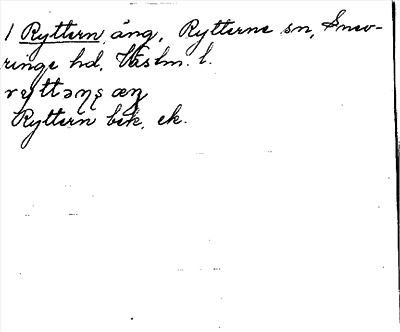 1 Ryttern, äng, Rytterne sn, Snev-
ringe hd, Västm. l.
ryttəɳʂ æŋ
Ryttern bek. ek.